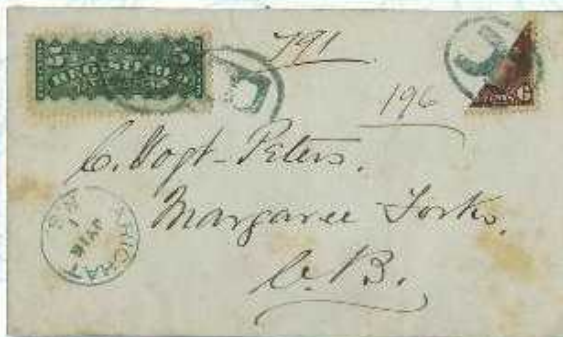 5 REGISTERED 5
791
196
6
C. Vogt-Peters,
Margaree Forks,
C.B.
ARICHAT
N.S